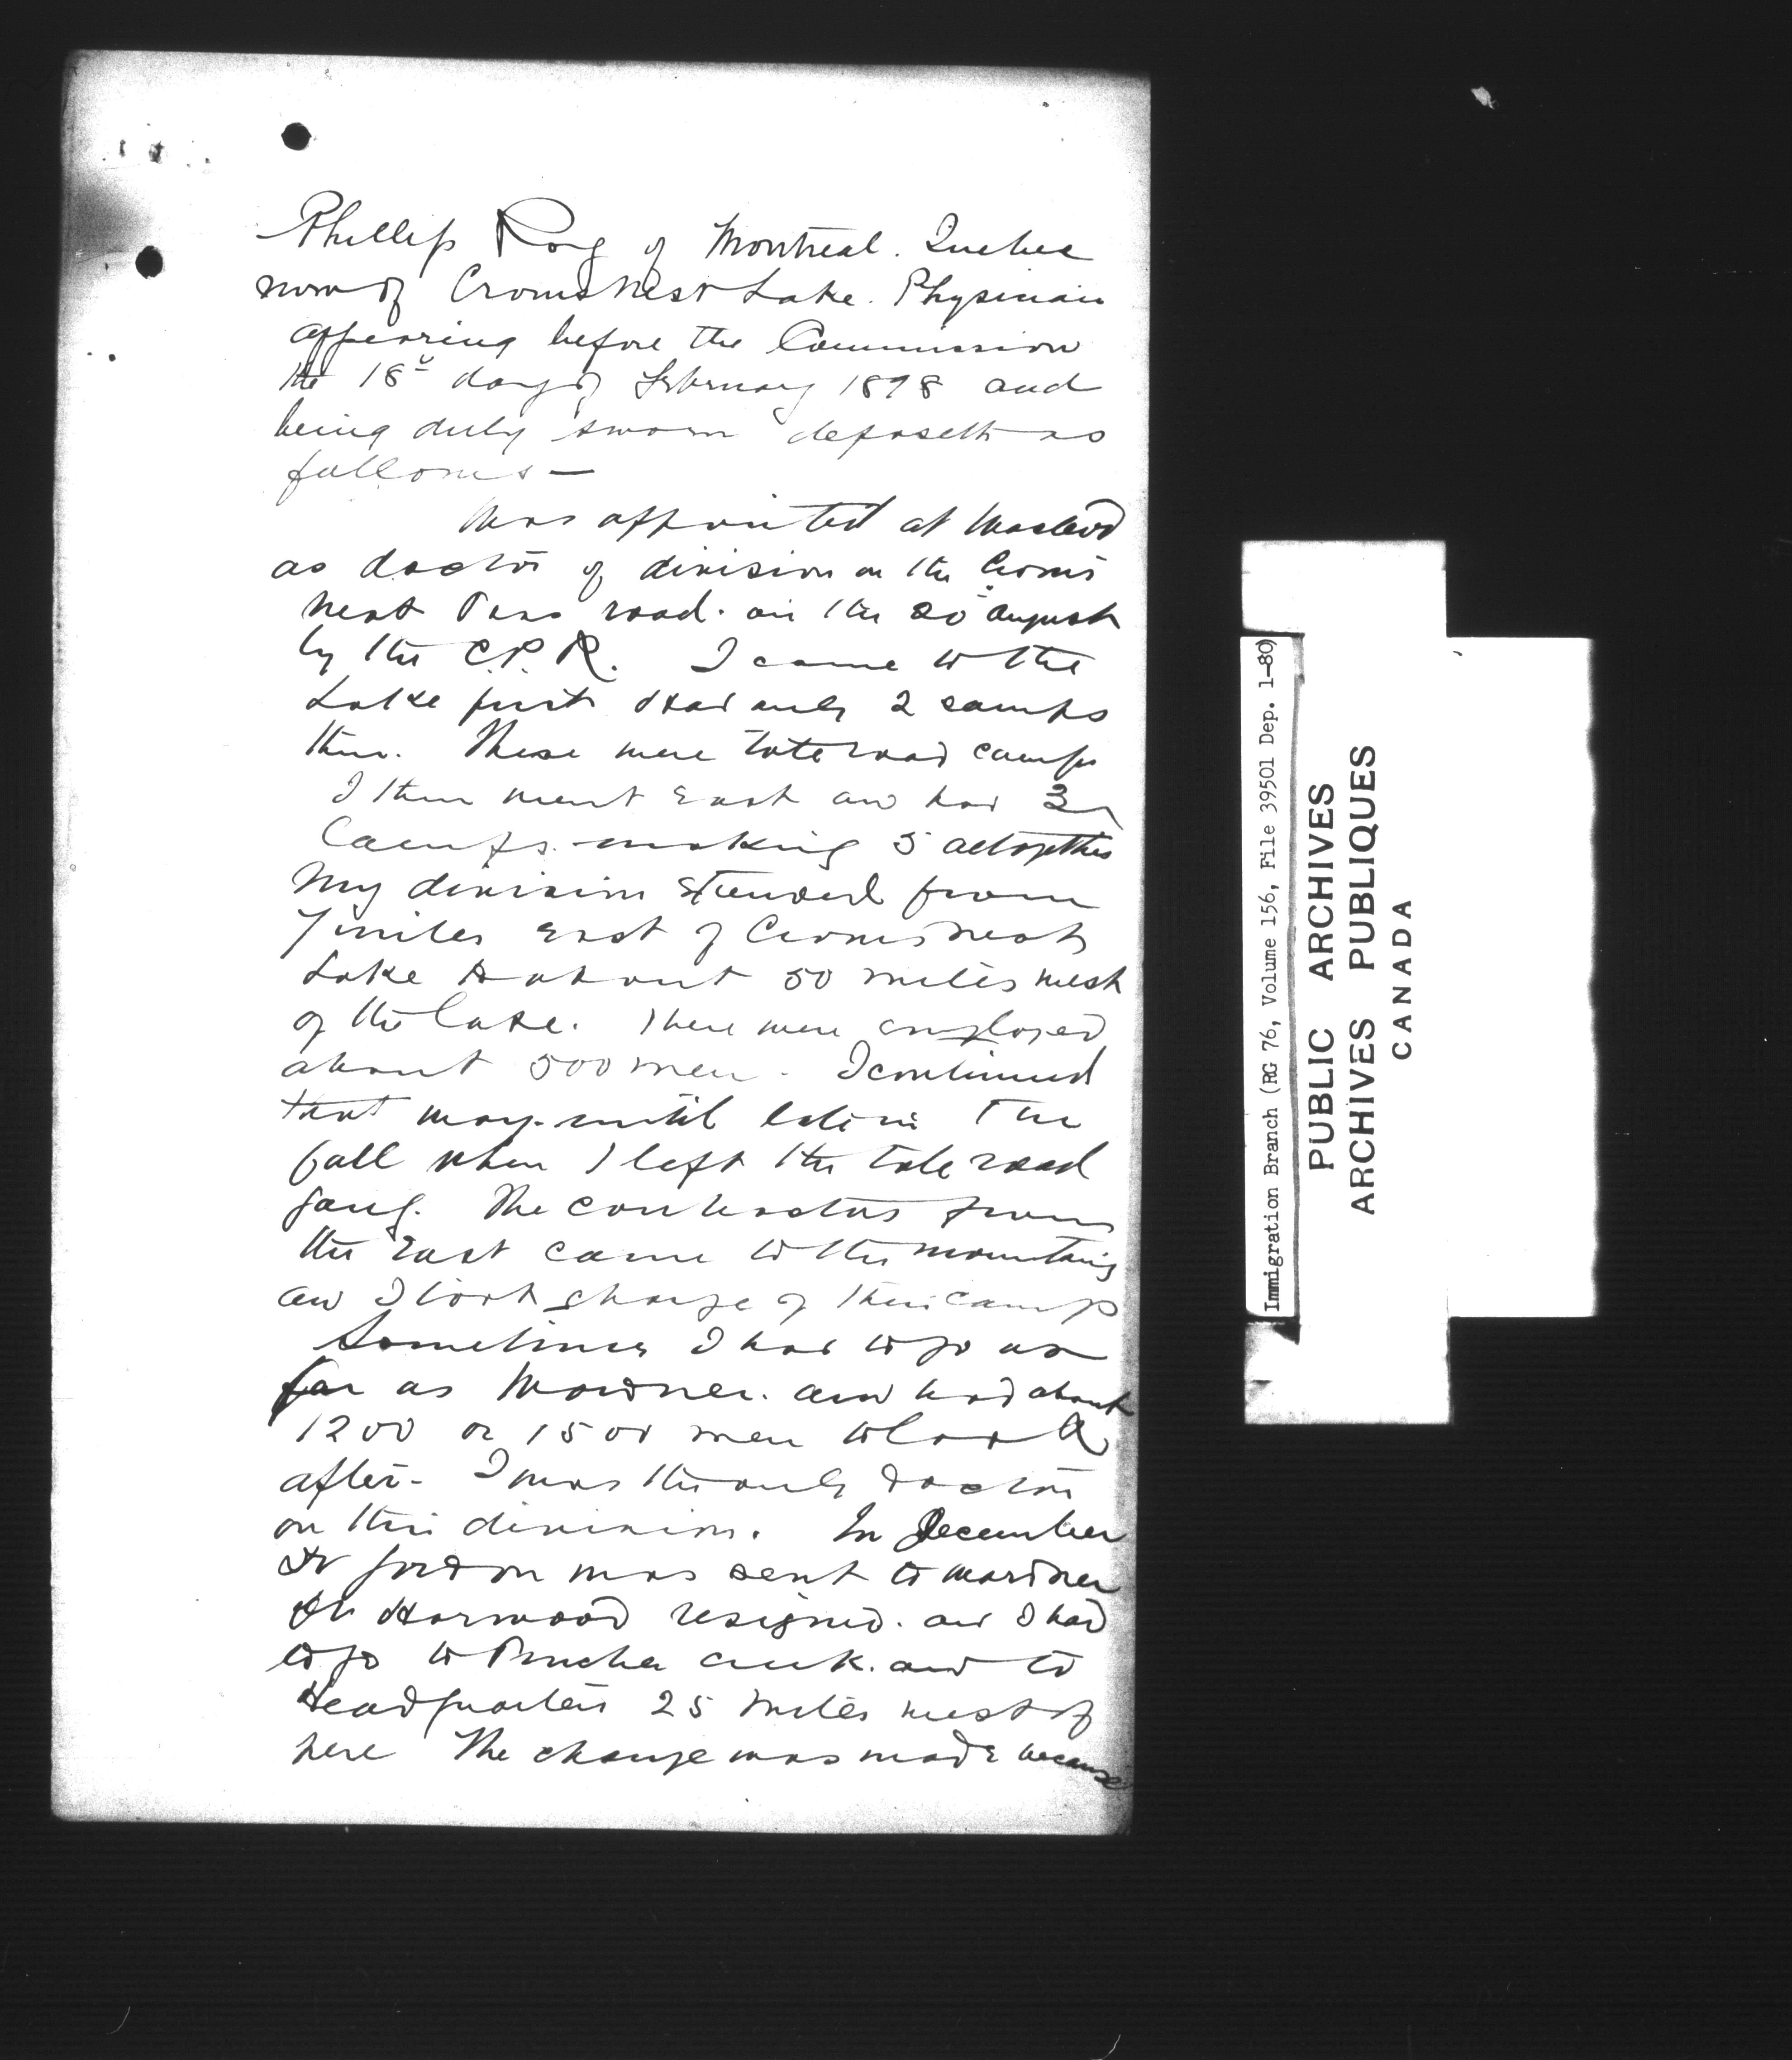 Phillip Roy of Montreal. Quebec
now of Crows Nest Lake. Physician
appearing before the Commission
the 18th day of February 1898 and
being duly sworn deposeth as
follows —
Was appointed at Macleod
as doctor of division on the Crows
Nest Pass road. on the 20 August
by the C.P.R. I came to the
Lake first & had only 2 camps
then. These were tote road camps
I then went East and had 3
Camps. making 5 altogether
My division extended from
7 miles East of Crows Nest
Lake to about 50 miles west
of the Lake. There were employed
about 500 men. I continued
that way. until late in the
fall when I left the tote road
gang. The contractors from
the East came to the mountains
and I took charge of their camp
Sometimes I had to go as
far as Wardner. and had about
1200 or 1500 men to look
after. I was the only doctor
on this division. In December
Dr Gordon was sent to Wardner
Dr Harwood resigned. and I had
to go to Pincher Creek. and to
Headquarters 25 miles west of
here The change was made because
Immigration Branch (RG 76, Volume 156, File 39501 Dep. 1-80)
PUBLIC ARCHIVES
ARCHIVES PUBLIQUES
CANADA